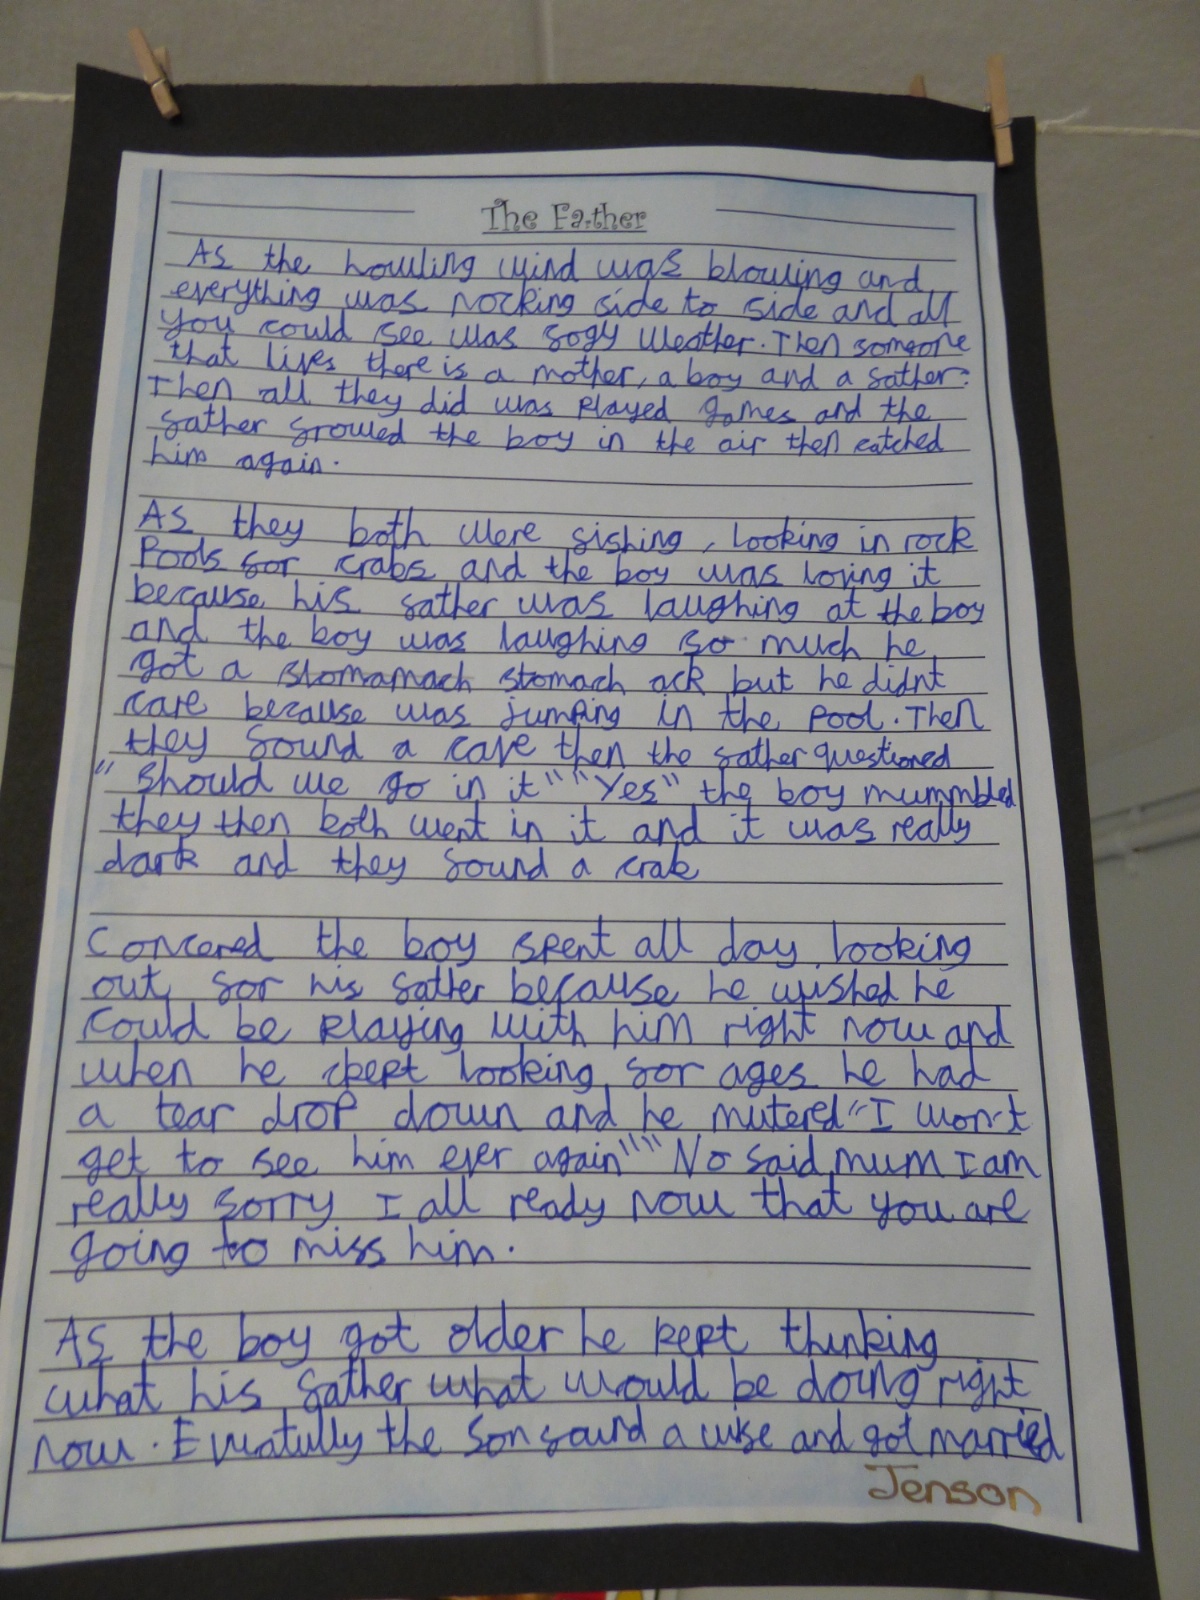 The Father
As the howling wind was blowing and
everything was rocking side to side and all
you could see was fogy weather. Then someone
that lives there is a mother, a boy and a father.
Then all they did was played games and the
father growed the boy in the air then catched
him again.
As they both were fishing, looking in rock
pools for crabs and the boy was loving it
because his father was laughing at the boy
and the boy was laughing so much he
got a stomamach stomach ack but he didnt
care because was jumping in the pool. Then
they found a cave then the father questioned
"should we go in it" "Yes" the boy mummbled
they then both went in it and it was really
dark and they found a crab
Concered the boy spent all day looking
out for his father because he wished he
could be playing with him right now and
when he ckept looking for ages he had
a tear drop down and he mutered "I won't
get to see him ever again" "No said mum I am
really sorry I all ready now that you are
going to miss him.
As the boy got older he kept thinking
what his father what would be doing right
now. Evuatully the son found a wise and got married
Jenson